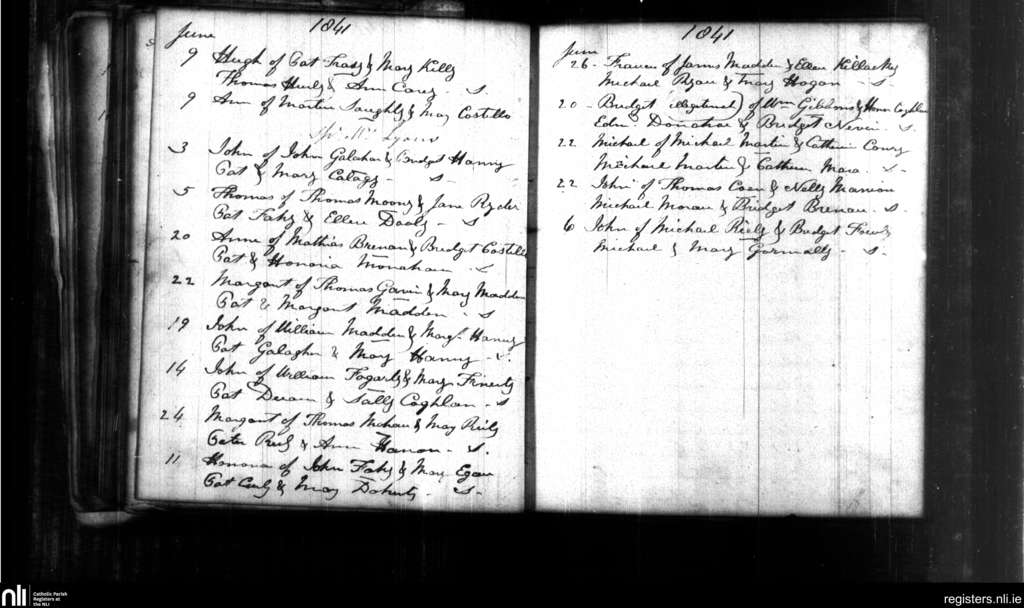 1841
June
9 Hugh of Pat Fahy & Mary Kelly
Thomas Hurly & Ann Carey - S.
9 Ann of Martin Loughly & Mary Costello
Mr Lyons
3 John of John Galahar & Bridget Hanny
Pat & Mary - S
5 Thomas of Thomas Moony & Jane Ryder
Pat Fahy & Ellen Dooly - S
20 Anne of Mathias Brenan & Bridget Costello
Pat & Honoria Monahan - S
22 Margaret of Thomas Garvin & Mary Madden
Pat & Margaret Madden - S
19 John of William Madden & Margt Hanny
Pat Galagher & Mary Hanny - S.
14 John of William Fogarty & Mary Finerty
Pat & Sally Coghlan - S
24 Margaret of Thomas & May Riely
Peter Riely & Ann Hanon - S.
11 Honoria of John Fahy & Mary Egan
Pat & Mary Doherty - S -
1841
June
26 - Frances of James Madden & Ellen Killacky
Michael Ryan & Mary Hogan - S.
20 - Bridget (illegitimate) of Wm Gibbons & Honor Coghlan
Edm. Donahue & Bridget Nevin - S.
22 Michael of Michael Martin & Catherine Conry
Michael Martin & Catherine Mara - S -
22 John of Thomas Coen & Nelly Mannion
Michael Moran & Bridget Brenan - S.
6 John of Michael Riely & Bridget
Michael & Mary Gormally - S.
nli
Catholic Parish
Registers at
the NLI
registers.nli.ie